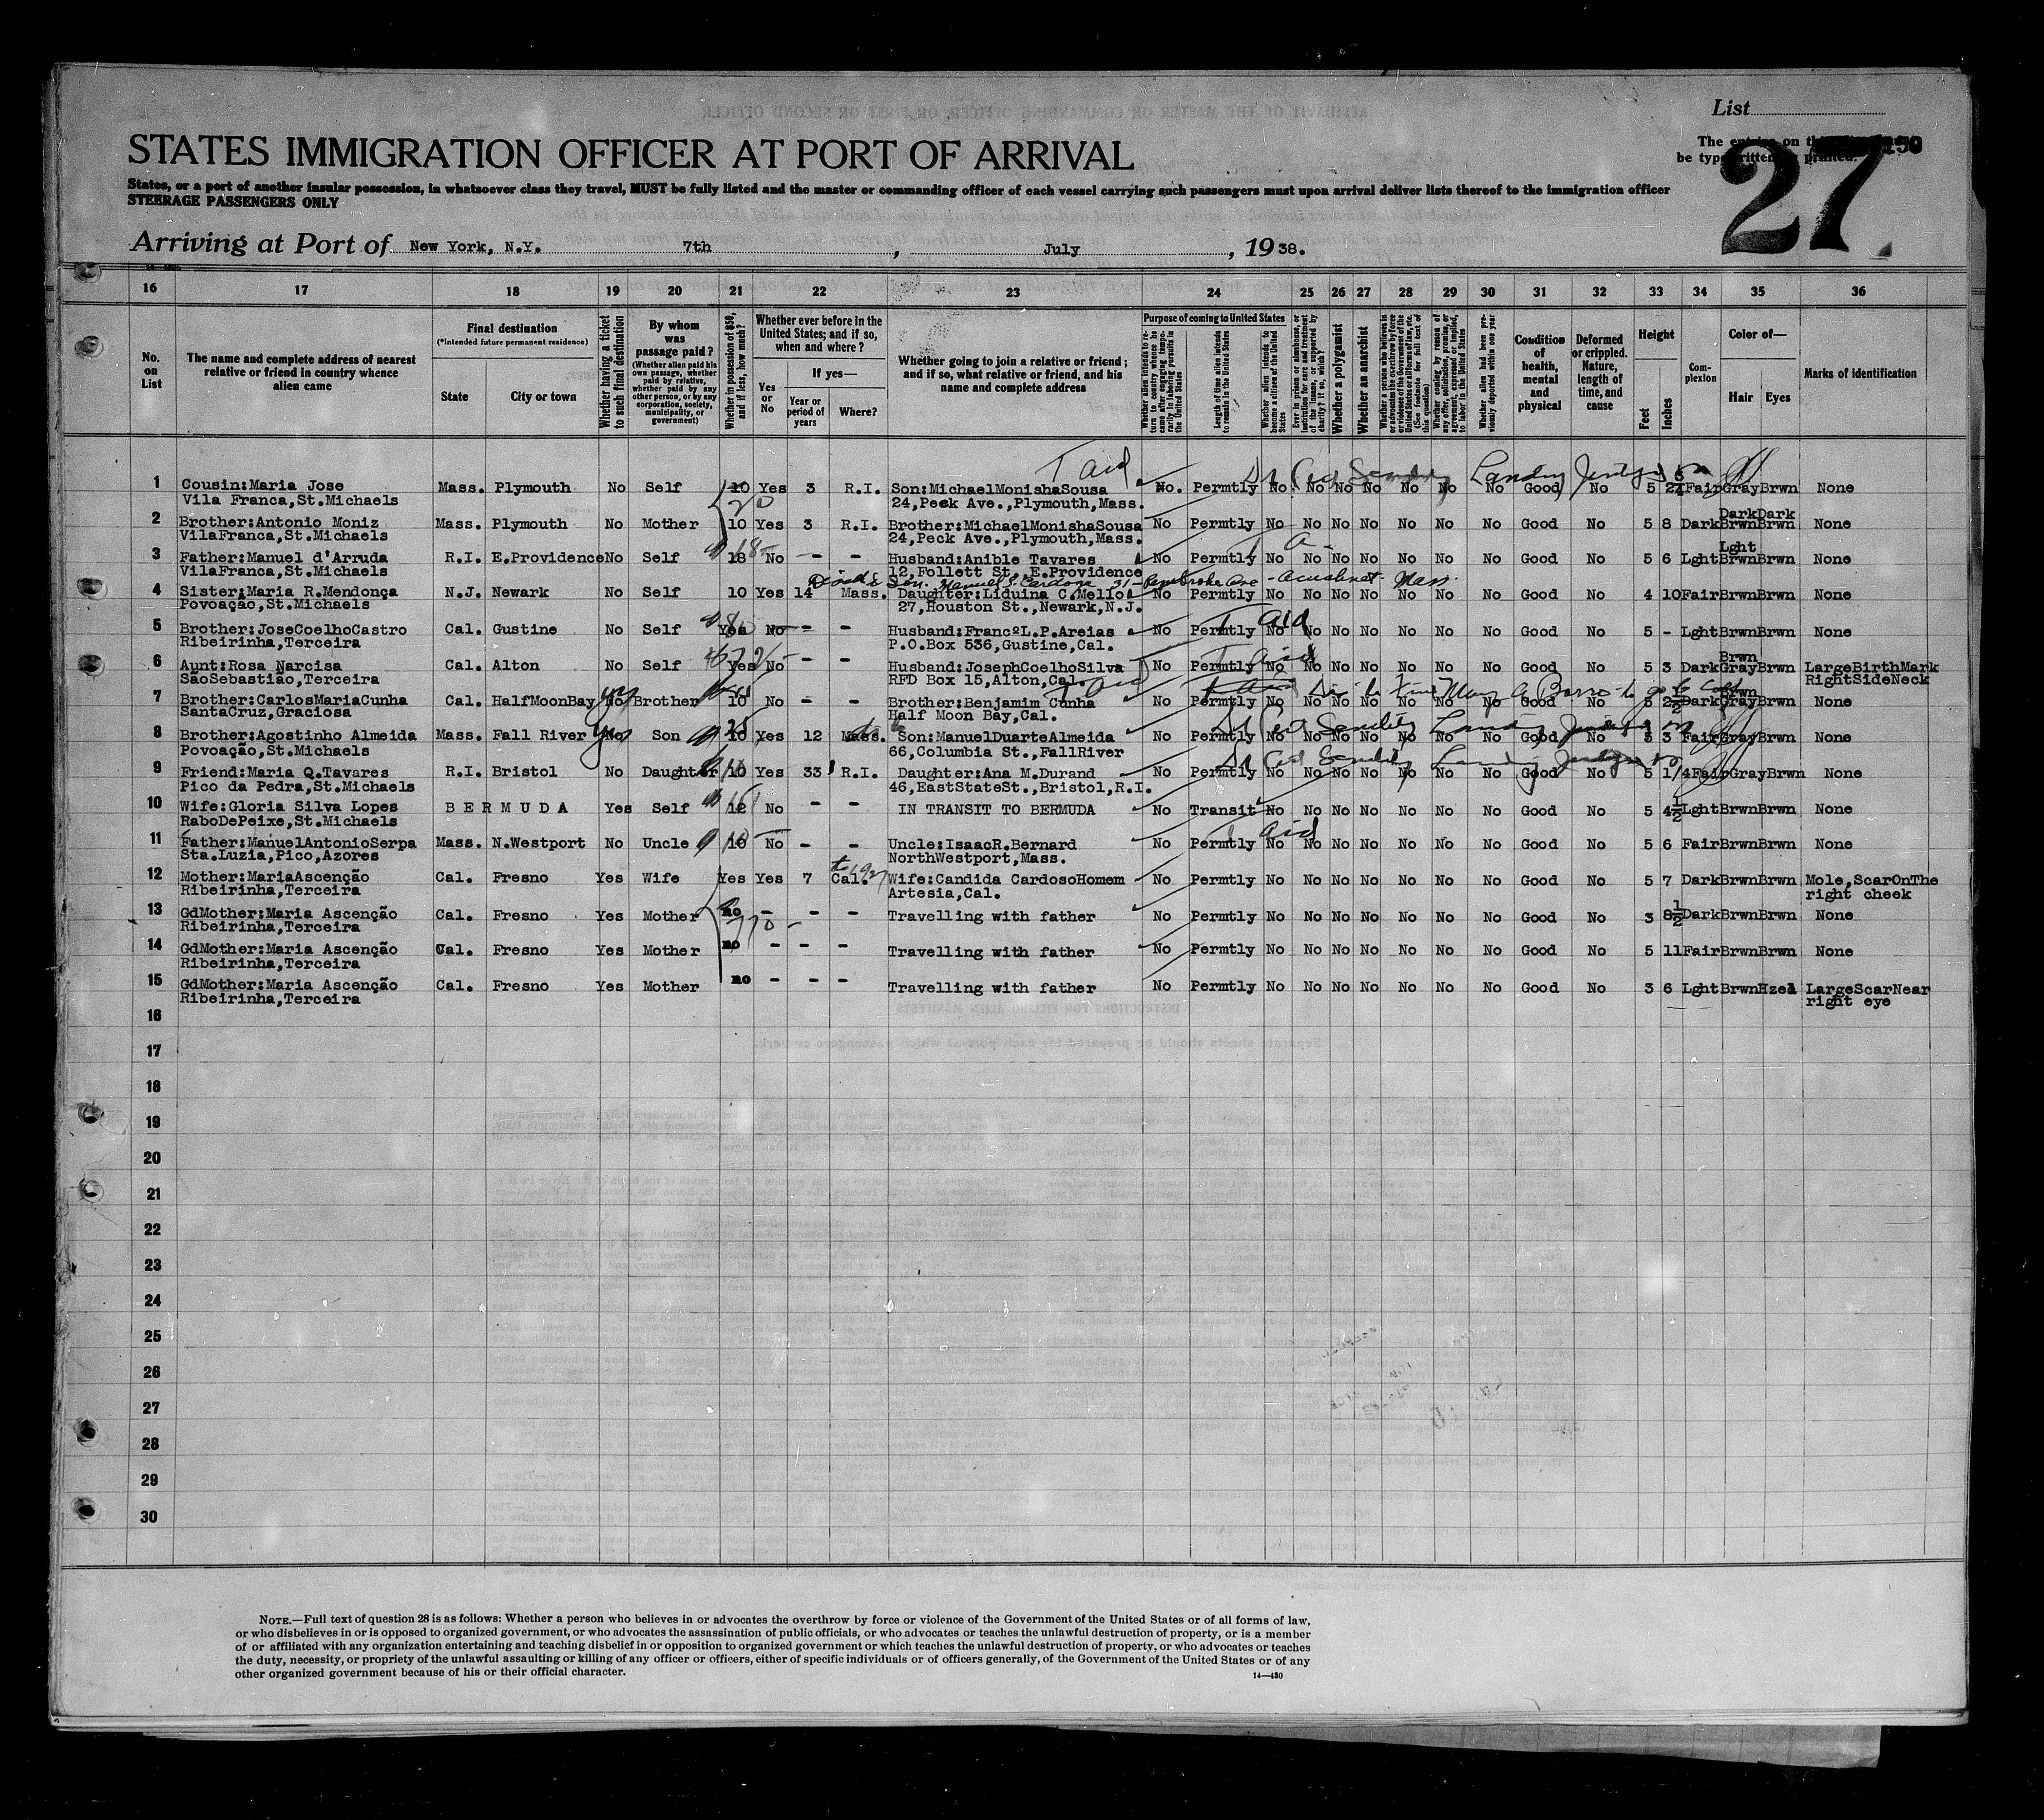 List
The entries on
be typewritten printed.
27
STATES IMMIGRATION OFFICER AT PORT OF ARRIVAL
States, or a port of another insular possession, in whatsoever class they travel, MUST be fully listed and the master or commanding officer of each vessel carrying such passengers must upon arrival deliver lists thereof to the immigration officer
STEERAGE PASSENGERS ONLY
Arriving at Port of New York, N.Y. 7th , July , 1938.
16 17 18 19 20 21 22 23 24 25 26 27 28 29 30 31 32 33 34 35 36
No. on List
The name and complete address of nearest relative or friend in country whence alien came
Final destination
(*Intended future permanent residence)
State
City or town
Whether having a ticket to such final destination
By whom was passage paid?
(Whether alien paid his own passage, whether paid by relative, whether paid by any other person, or by any corporation, society, municipality, or government)
Whether in possession of $50, and if less, how much?
Whether ever before in the United States; and if so, when and where?
If yes—
Yes or No
Year or period of years
Where?
Whether going to join a relative or friend; and if so, what relative or friend, and his name and complete address
Purpose of coming to United States
Whether alien intends to return to country whence he came after engaging temporarily in laboring pursuits in the United States
Length of time alien intends to remain in the United States
Whether alien intends to become a citizen of the United States
Ever in prison or almshouse, or institution for care and treatment of the insane, or supported by charity? If so, which?
Whether a polygamist
Whether an anarchist
Whether a person who believes in or advocates the overthrow by force or violence of the Government of the United States or all forms of law, etc. (See footnote for full text of this question)
Whether coming by reason of any offer, solicitation, promise, or agreement, expressed or implied, to labor in the United States
Whether alien had been previously deported within one year
Condition of health, mental and physical
Deformed or crippled. Nature, length of time, and cause
Height
Feet
Inches
Complexion
Color of—
Hair
Eyes
Marks of identification
1 Cousin:Maria Jose Mass. Plymouth No Self 10 Yes 3 R.I. Son:MichaelMonishaSousa No. Permtly No No No No No No No Good No 5 Fair Gray Brwn None
Vila Franca,St.Michaels 20 24,Peck Ave.,Plymouth,Mass.
2 Brother:Antonio Moniz Mass. Plymouth No Mother 10 Yes 3 R.I. Brother:MichaelMonishaSousa No Permtly No No No No No No No Good No 5 8 Dark DarkBrwn DarkBrwn None
VilaFranca,St.Michaels 24,Peck Ave.,Plymouth,Mass.
3 Father:Manuel d'Arruda R.I. E.Providence No Self 18 No — — Husband:Anible Tavares No Permtly No No No No No No No Good No 5 6 Lght LghtBrwn Brwn None
VilaFranca,St.Michaels 12,Follett St.,E.Providence
Son. Manuel S. Cardoza 31- Pembroke Ave - Acushnet Mass.
4 Sister:Maria R.Mendonça N.J. Newark No Self 10 Yes 14 Mass. Daughter:Liduina C.Mello No Permtly No No No No No No No Good No 4 10 Fair Brwn Brwn None
Povoação,St.Michaels 27,Houston St.,Newark,N.J.
5 Brother:JoseCoelhoCastro Cal. Gustine No Self Yes No — — Husband:FrancºL.P.Areias No Permtly No No No No No No No Good No 5 - Lght Brwn Brwn None
Ribeirinha,Terceira P.O.Box 536,Gustine,Cal.
6 Aunt:Rosa Narcisa Cal. Alton No Self Yes No — — Husband:JosephCoelhoSilva No Permtly No No No No No No No Good No 5 3 Dark Brwn Gray Brwn LargeBirthMark
SãoSebastião,Terceira RFD Box 15,Alton,Cal. RightSideNeck
7 Brother:CarlosMariaCunha Cal. HalfMoonBay No Brother 10 No — — Brother:Benjamim Cunha No Permtly No No No No No No No Good No 5 2½ Dark Brwn Gray Brwn None
SantaCruz,Graciosa Half Moon Bay,Cal.
8 Brother:Agostinho Almeida Mass. Fall River No Yes Son 10 Yes 12 Mass. Son:ManuelDuarteAlmeida No Permtly No No No No No No No Good No 5 3 Fair Gray Brwn None
Povoação,St.Michaels 66,Columbia St.,FallRiver
9 Friend:Maria Q.Tavares R.I. Bristol No Daughter 10 Yes 33 R.I. Daughter:Ana M.Durand No Permtly No No No No No No No Good No 5 1/4 Fair Gray Brwn None
Pico da Pedra,St.Michaels 46,EastStateSt.,Bristol,R.I.
10 Wife:Gloria Silva Lopes BERMUDA Yes Self 12 No — — IN TRANSIT TO BERMUDA No Transit No No No No No No No Good No 5 4½ Lght Brwn Brwn None
RaboDePeixe,St.Michaels
11 Father:ManuelAntonioSerpa Mass. N.Westport No Uncle 10 No — — Uncle:IsaacR.Bernard No Permtly No No No No No No No Good No 5 6 Fair Brwn Brwn None
Sta.Luzia,Pico,Azores NorthWestport,Mass.
12 Mother:MariaAscenção Cal. Fresno Yes Wife Yes Yes 7 Cal. Wife:Candida CardosoHomem No Permtly No No No No No No No Good No 5 7 Dark Brwn Brwn Mole,ScarOnThe
Ribeirinha,Terceira Artesia,Cal. right cheek
13 GdMother:Maria Ascenção Cal. Fresno Yes Mother no — — — Travelling with father No Permtly No No No No No No No Good No 3 8½ Dark Brwn Brwn None
Ribeirinha,Terceira
14 GdMother:Maria Ascenção Cal. Fresno Yes Mother no - - - Travelling with father No Permtly No No No No No No No Good No 5 11 Fair Brwn Brwn None
Ribeirinha,Terceira
15 GdMother:Maria Ascenção Cal. Fresno Yes Mother no - - - Travelling with father No Permtly No No No No No No No Good No 3 6 Lght Brwn Hzel LargeScarNear
Ribeirinha,Terceira right eye
16
17
18
19
20
21
22
23
24
25
26
27
28
29
30
NOTE.—Full text of question 28 is as follows: Whether a person who believes in or advocates the overthrow by force or violence of the Government of the United States or of all forms of law,
or who disbelieves in or is opposed to organized government, or who advocates the assassination of public officials, or who advocates or teaches the unlawful destruction of property, or is a member
of or affiliated with any organization entertaining and teaching disbelief in or opposition to organized government or which teaches the unlawful destruction of property, or who advocates or teaches
the duty, necessity, or propriety of the unlawful assaulting or killing of any officer or officers, either of specific individuals or of officers generally, of the Government of the United States or of any
other organized government because of his or their official character.
14—430